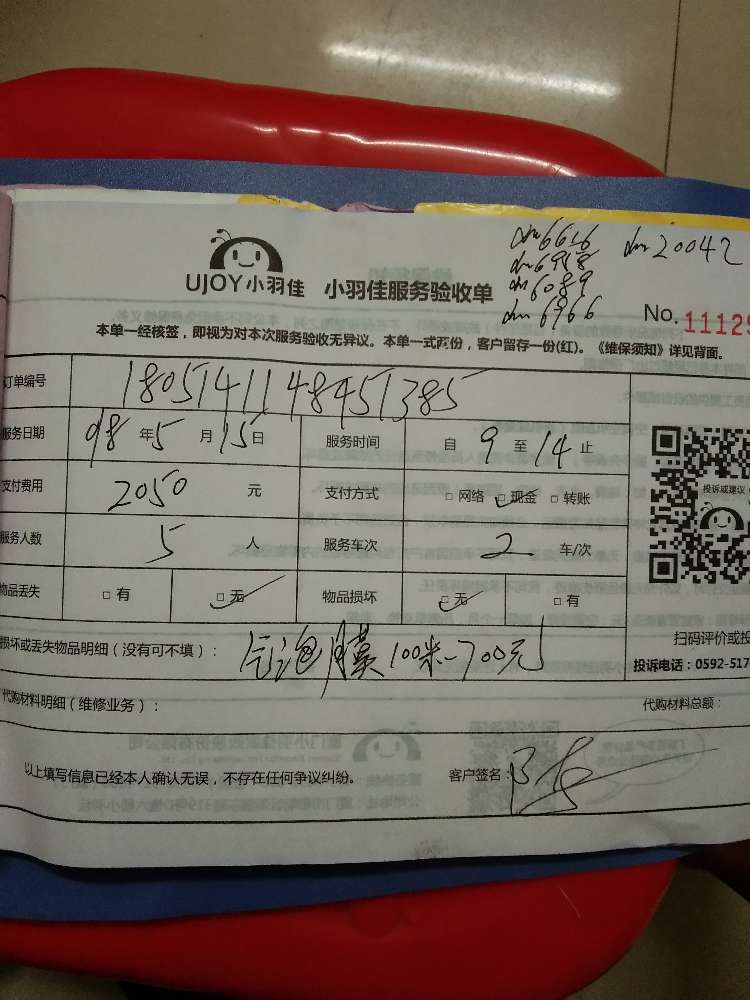 dm6616 dm20042
dm6958
dm6089
dm6766
UJOY小羽佳 小羽佳服务验收单
No.11129
本单一经核签，即视为对本次服务验收无异议。本单一式两份，客户留存一份(红)。《维保须知》详见背面。
订单编号 180514114848451385
服务日期 98年5月15日 服务时间 自9至14止
支付费用 2050元 支付方式 □网络 □现金 □转账
投诉或建议
服务人数 5人 服务车次 2车/次
物品丢失 □有 □无 物品损坏 □无 □有
扫码评价或投
损坏或丢失物品明细（没有可不填）： 气泡膜100米-700元
投诉电话：0592-517
代购材料明细（维修业务）： 代购材料总额：
以上填写信息已经本人确认无误，不存在任何争议纠纷。 客户签名：